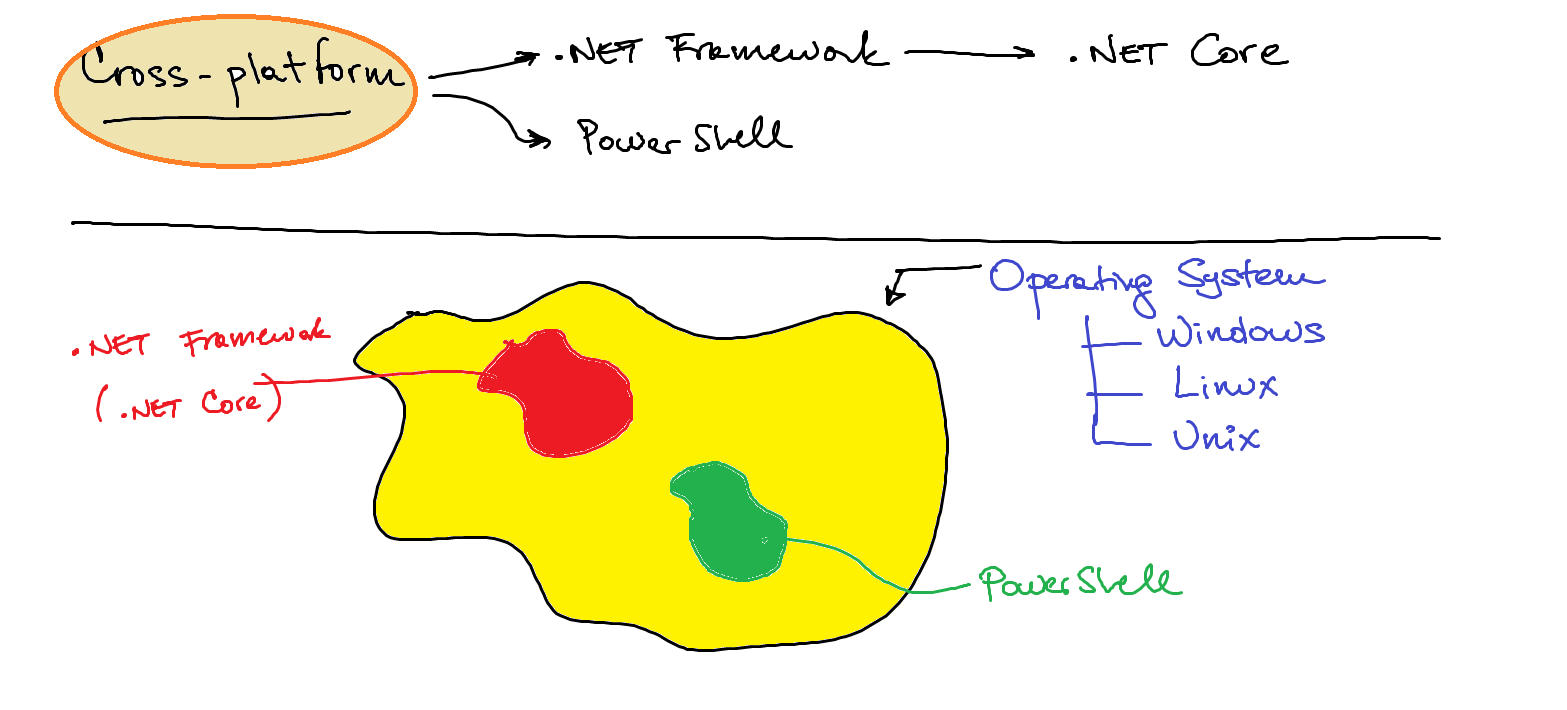 Cross-platform
.NET Framework
.NET Core
PowerShell
Operating System
Windows
Linux
Unix
.NET Framewok
(.NET Core)
PowerShell